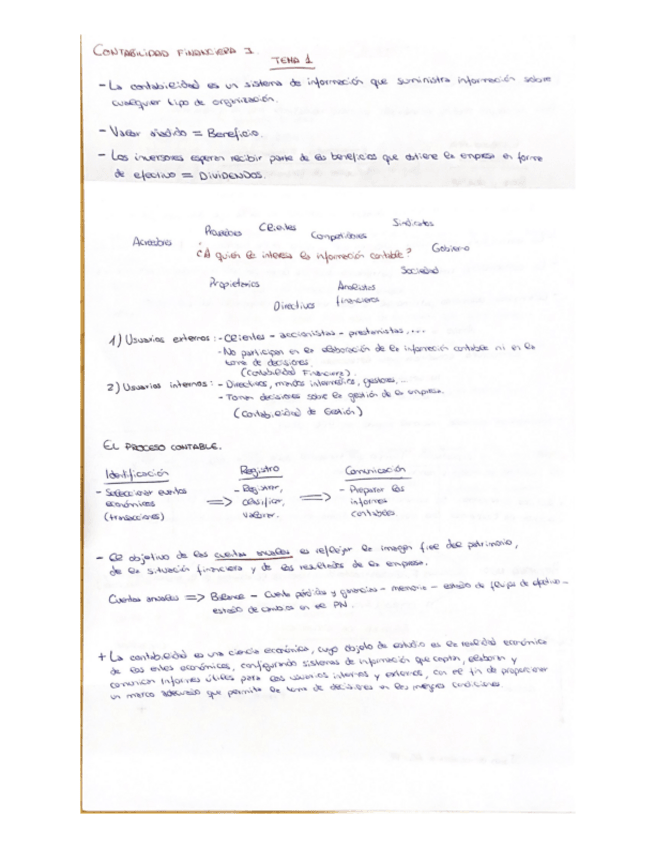 CONTABILIDAD FINANCIERA I.
TEMA 1
- La contabilidad es un sistema de información que suministra información sobre
cualquier tipo de organización.
- Valor añadido = Beneficio.
- Los inversores esperan recibir parte de los beneficios que obtiene la empresa en forma
de efectivo = DIVIDENDOS.
Sindicatos
Clientes
Competidores
Gobierno
¿A quién le interesa la información contable?
Sociedad
Propietarios
Analistas
financieros
Directivos
1) Usuarios externos: - Clientes - accionistas - prestamistas, ...
- No participan en la elaboración de la información contable ni en la
toma de decisiones.
(Contabilidad Financiera).
2) Usuarios internos: - Directivos, mandos intermedios, gestores, ...
- Toman decisiones sobre la gestión de la empresa.
(Contabilidad de Gestión)
EL PROCESO CONTABLE.
Identificación
- Seleccionar eventos
económicos
(transacciones)
=>
Registro
- Registrar,
clasificar,
valorar.
=>
Comunicación
- Preparar los
informes
contables
- El objetivo de las cuentas anuales es reflejar la imagen fiel del patrimonio,
de la situación financiera y de los resultados de la empresa.
Cuentas anuales => Balance - Cuenta pérdidas y ganancias - memoria - estado de flujos de efectivo -
estado de cambios en el PN.
+ La contabilidad es una ciencia económica, cuyo objeto de estudio es la realidad económica
de los entes económicos, configurando sistemas de información que captan, elaboran y
comunican informes útiles para los usuarios internos y externos, con el fin de proporcionar
un marco adecuado que permita la toma de decisiones en las mejores condiciones.